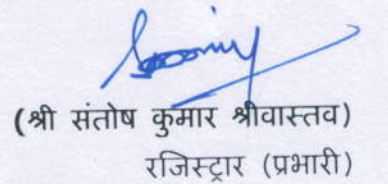 (श्री संतोष कुमार श्रीवास्तव)
रजिस्ट्रार (प्रभारी)